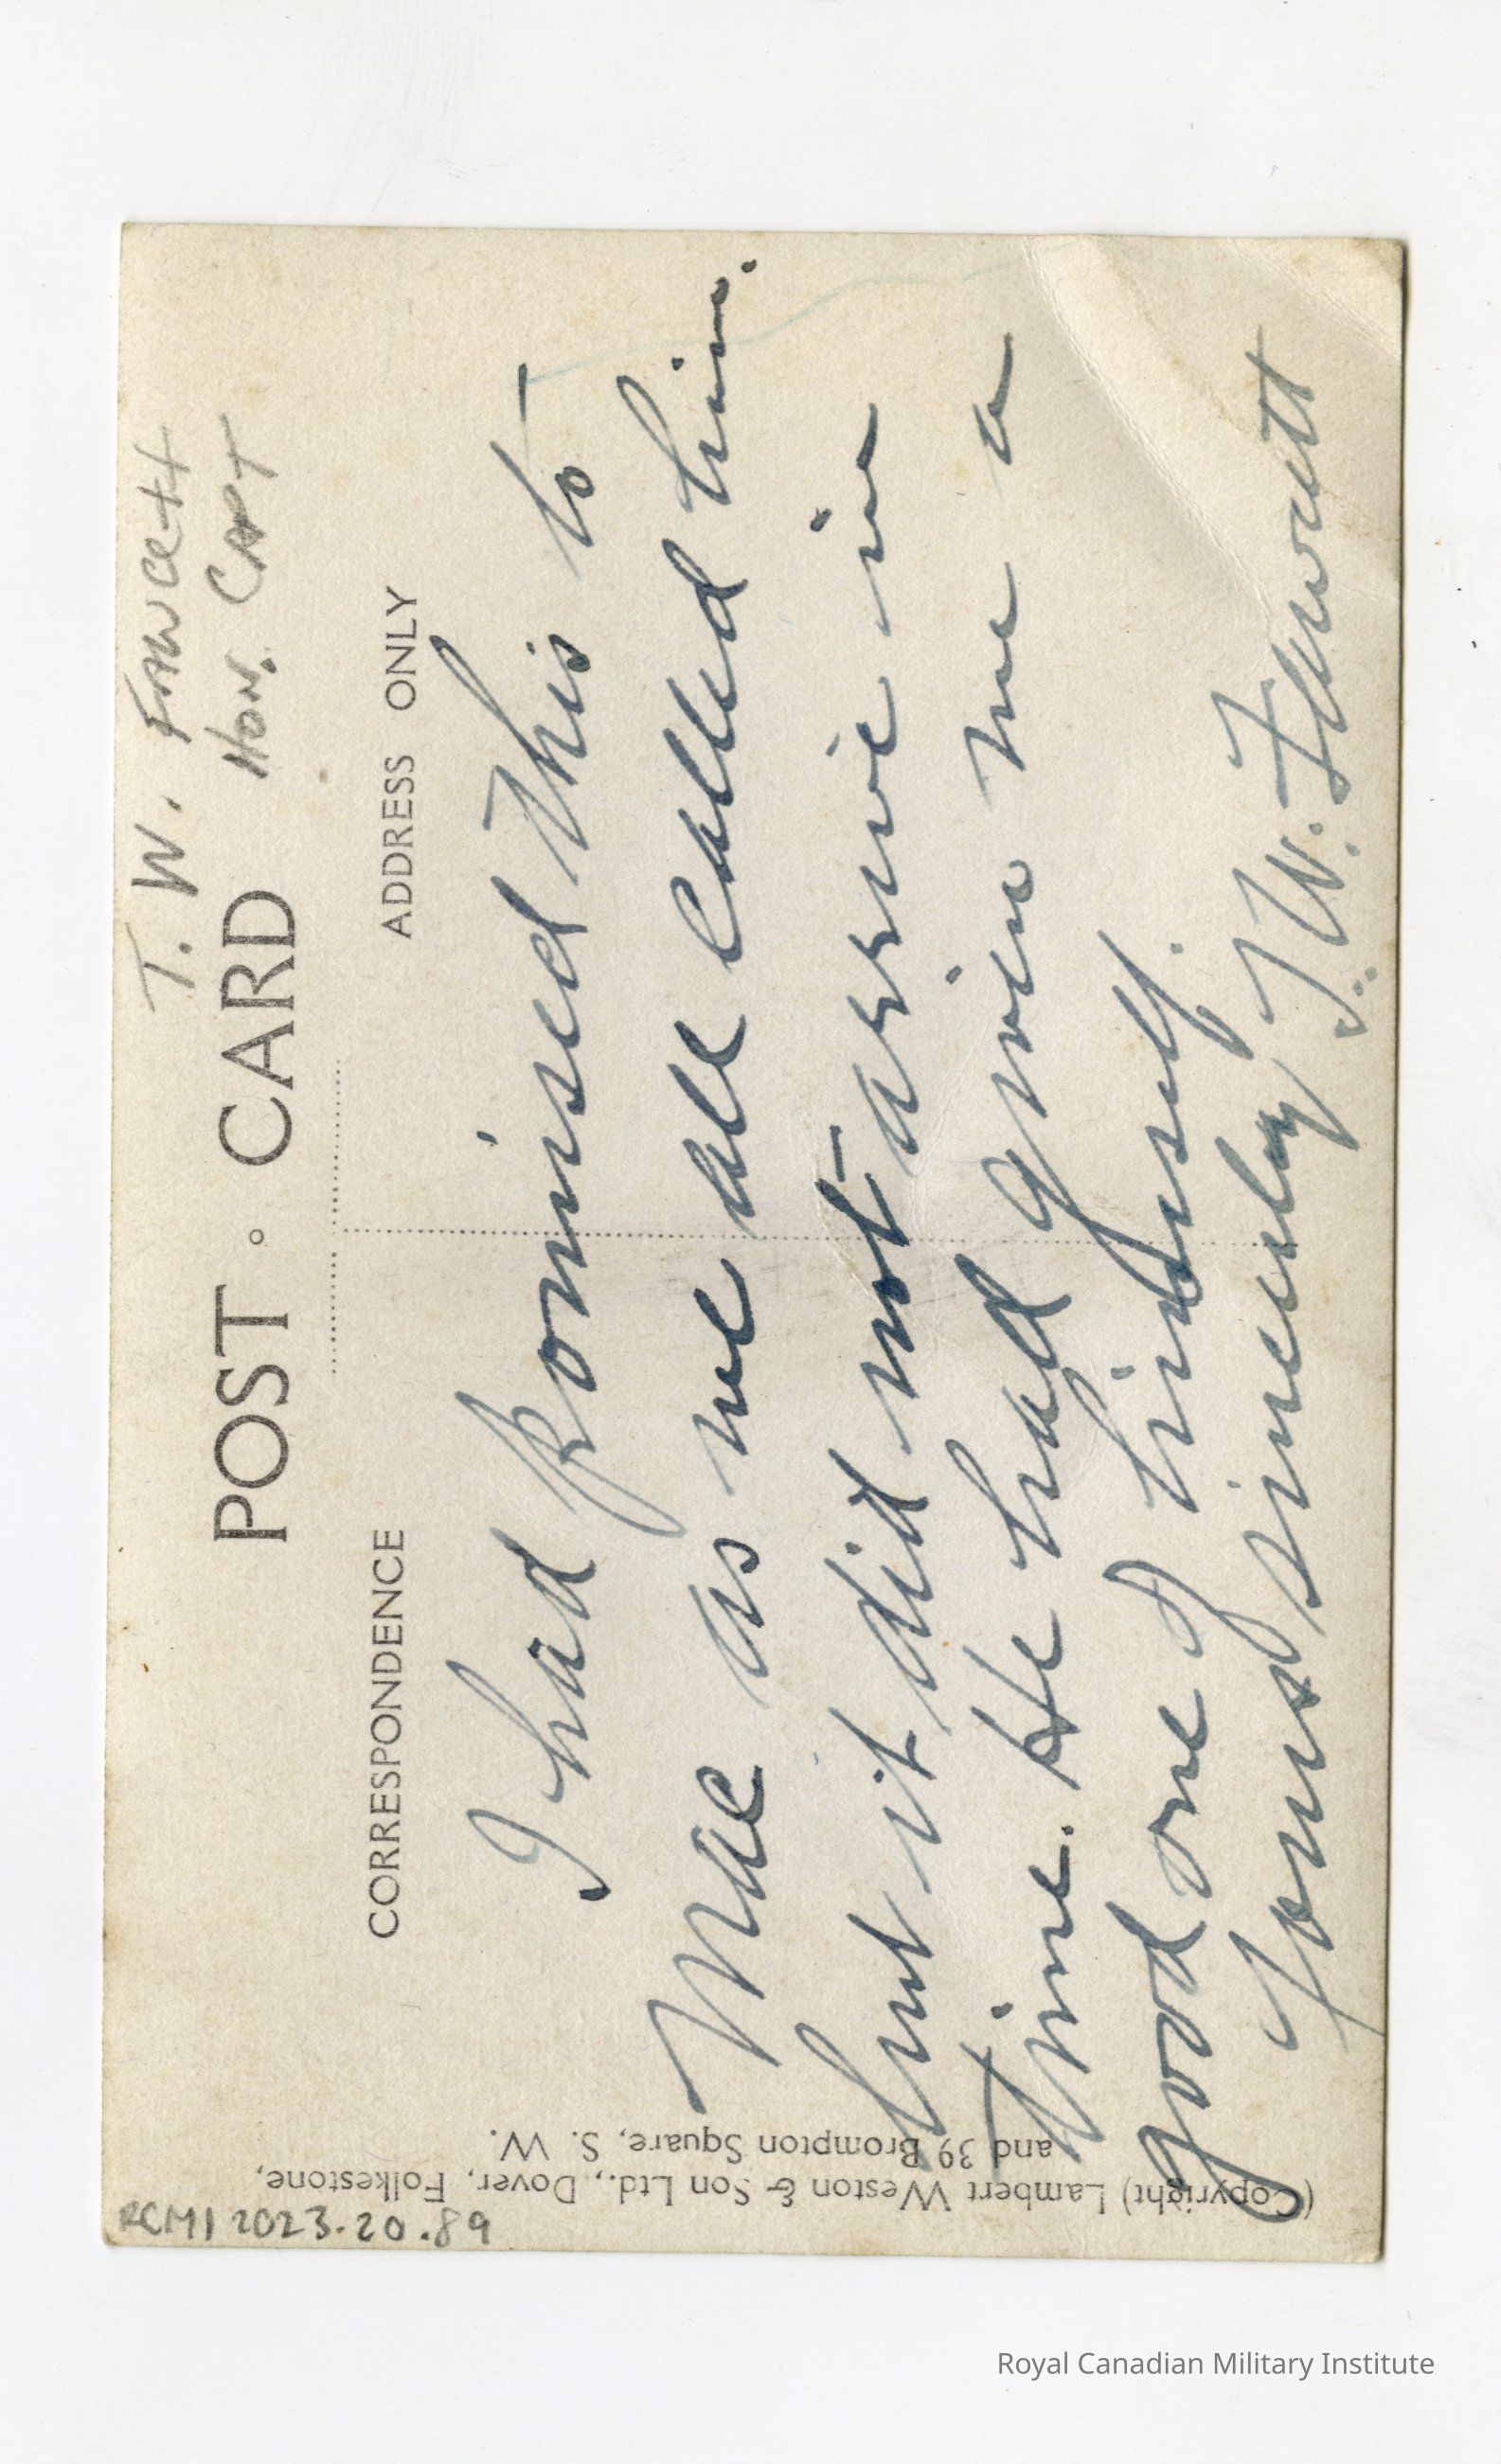 T. W. FAWCETT
HON. CAPT
POST CARD
CORRESPONDENCE
ADDRESS ONLY
I had promised this to
Mac as we all called him.
but it did not arrive in
time. He had given me a
good one of himself.
Yours sincerely T. W. Fawcett
(Copyright) Lambert Weston & Son Ltd., Dover, Folkestone,
and 39 Brompton Square, S. W.
RCMI 2023.20.89
Royal Canadian Military Institute